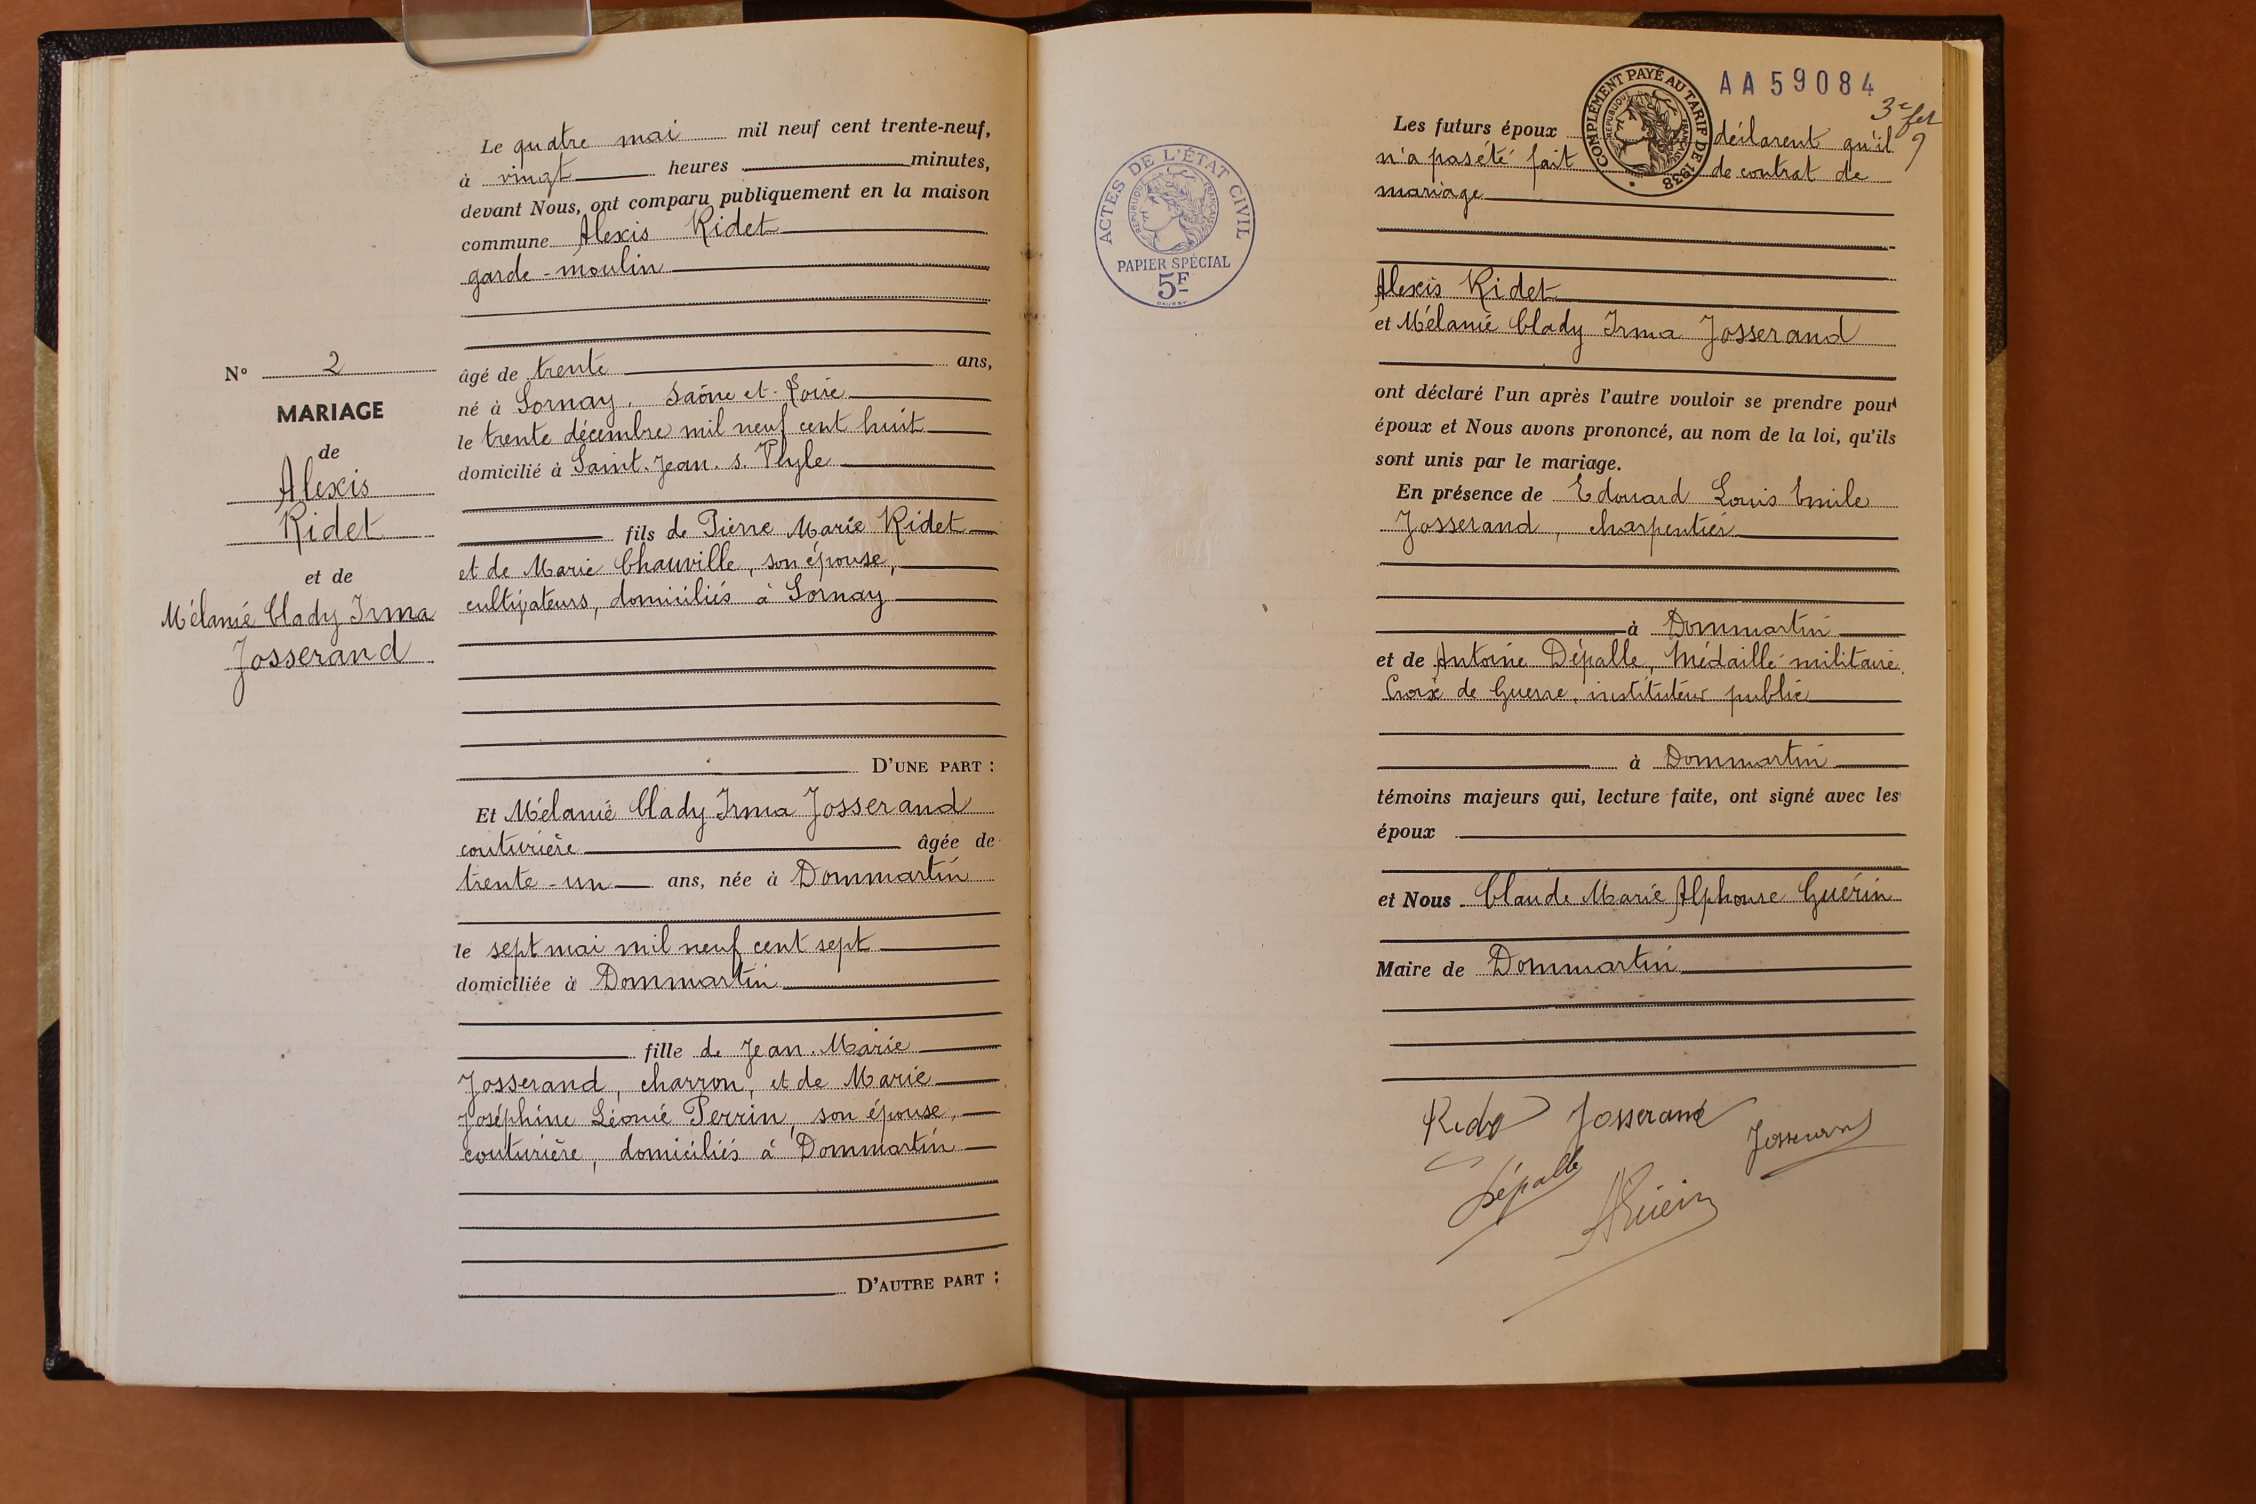 Le quatre mai mil neuf cent trente-neuf,
à vingt heures minutes,
devant Nous, ont comparu publiquement en la maison
commune Alexis Ridet
garde-moulin
âgé de trente ans,
né à Sornay. Saône et Loire
le trente décembre mil neuf cent huit
domicilié à Saint.Jean. s. Veyle
fils de Pierre Marie Ridet
et de Marie Chauville, son épouse,
cultivateurs, domiciliés à Sornay
D'UNE PART :
N° 2
MARIAGE
de
Alexis
Ridet
et de
Mélanie Clady Irma
Josserand
Et Mélanie Clady Irma Josserand
couturière âgée de
trente-un ans, née à Dommartin
le sept mai mil neuf cent sept
domiciliée à Dommartin
fille de Jean.Marie
Josserand, charron, et de Marie
Joséphine Léonie Perrin, son épouse,
couturière, domiciliés à Dommartin
D'AUTRE PART :
ACTES DE L'ÉTAT CIVIL
RÉPUBLIQUE FRANÇAISE
PAPIER SPÉCIAL
5F
COMPLÉMENT PAYÉ AU TARIF DE 1938
RÉPUBLIQUE FRANÇAISE
AA 59084
3e
Les futurs époux déclarent qu'il
n'a pas été fait de contrat de
mariage
Alexis Ridet
et Mélanie Clady Irma Josserand
ont déclaré l'un après l'autre vouloir se prendre pour
époux et Nous avons prononcé, au nom de la loi, qu'ils
sont unis par le mariage.
En présence de Edouard Louis Emile
Josserand, charpentier
à Dommartin
et de Antoine Dépalle, Médaille militaire.
Croix de Guerre, instituteur public
à Dommartin
témoins majeurs qui, lecture faite, ont signé avec les
époux
et Nous Claude Marie Alphonse Guérin
Maire de Dommartin
Ridet Josserand
Josserand
Dépalle
AGuérin